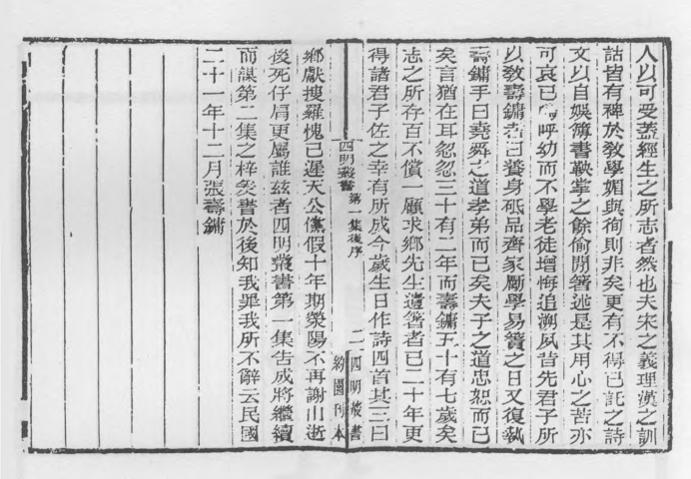 人以可受蓋經生之所志者然也夫宋之義理漢之訓
詁皆有裨於敎學媚與徇則非矣更有不得已託之詩
文以自娛簿書鞅掌之餘偷閒箸述是其用心之苦亦
可哀已嗚呼幼而不學老徒增悔追溯夙昔先君子所
以敎壽鏞者曰養身砥品齊家勵學易簀之日又復執
壽鏞手曰堯舜之道孝弟而已矣夫子之道忠恕而已
矣言猶在耳忽忽三十有二年而壽鏞五十有七歲矣
志之所存百不償一顧求鄉先生遺箸者已二十年更
得諸君子佐之幸有所成今歲生日作詩四首其三曰
四明叢書 第一集後序 二 四明叢書
約園刊本
鄉獻搜羅愧已遲天公儻假十年期滎陽不再謝山逝
後死仔肩更屬誰茲者四明叢書第一集告成將繼續
而謀第二集之梓爰書於後知我罪我所不辭云民國
二十一年十二月張壽鏞